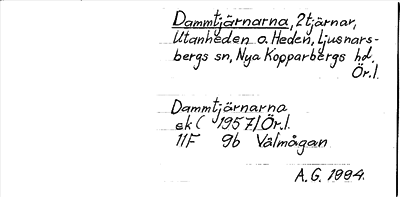 Dammtjärnarna, 2 tjärnar,
Utanheden o. Heden, Ljusnars-
bergs sn, Nya Kopparbergs hd,
Ör.l.
Dammtjärnarna
ek ( 1957/Ör.l.
11F 9b Välmågan
A.G. 1994.